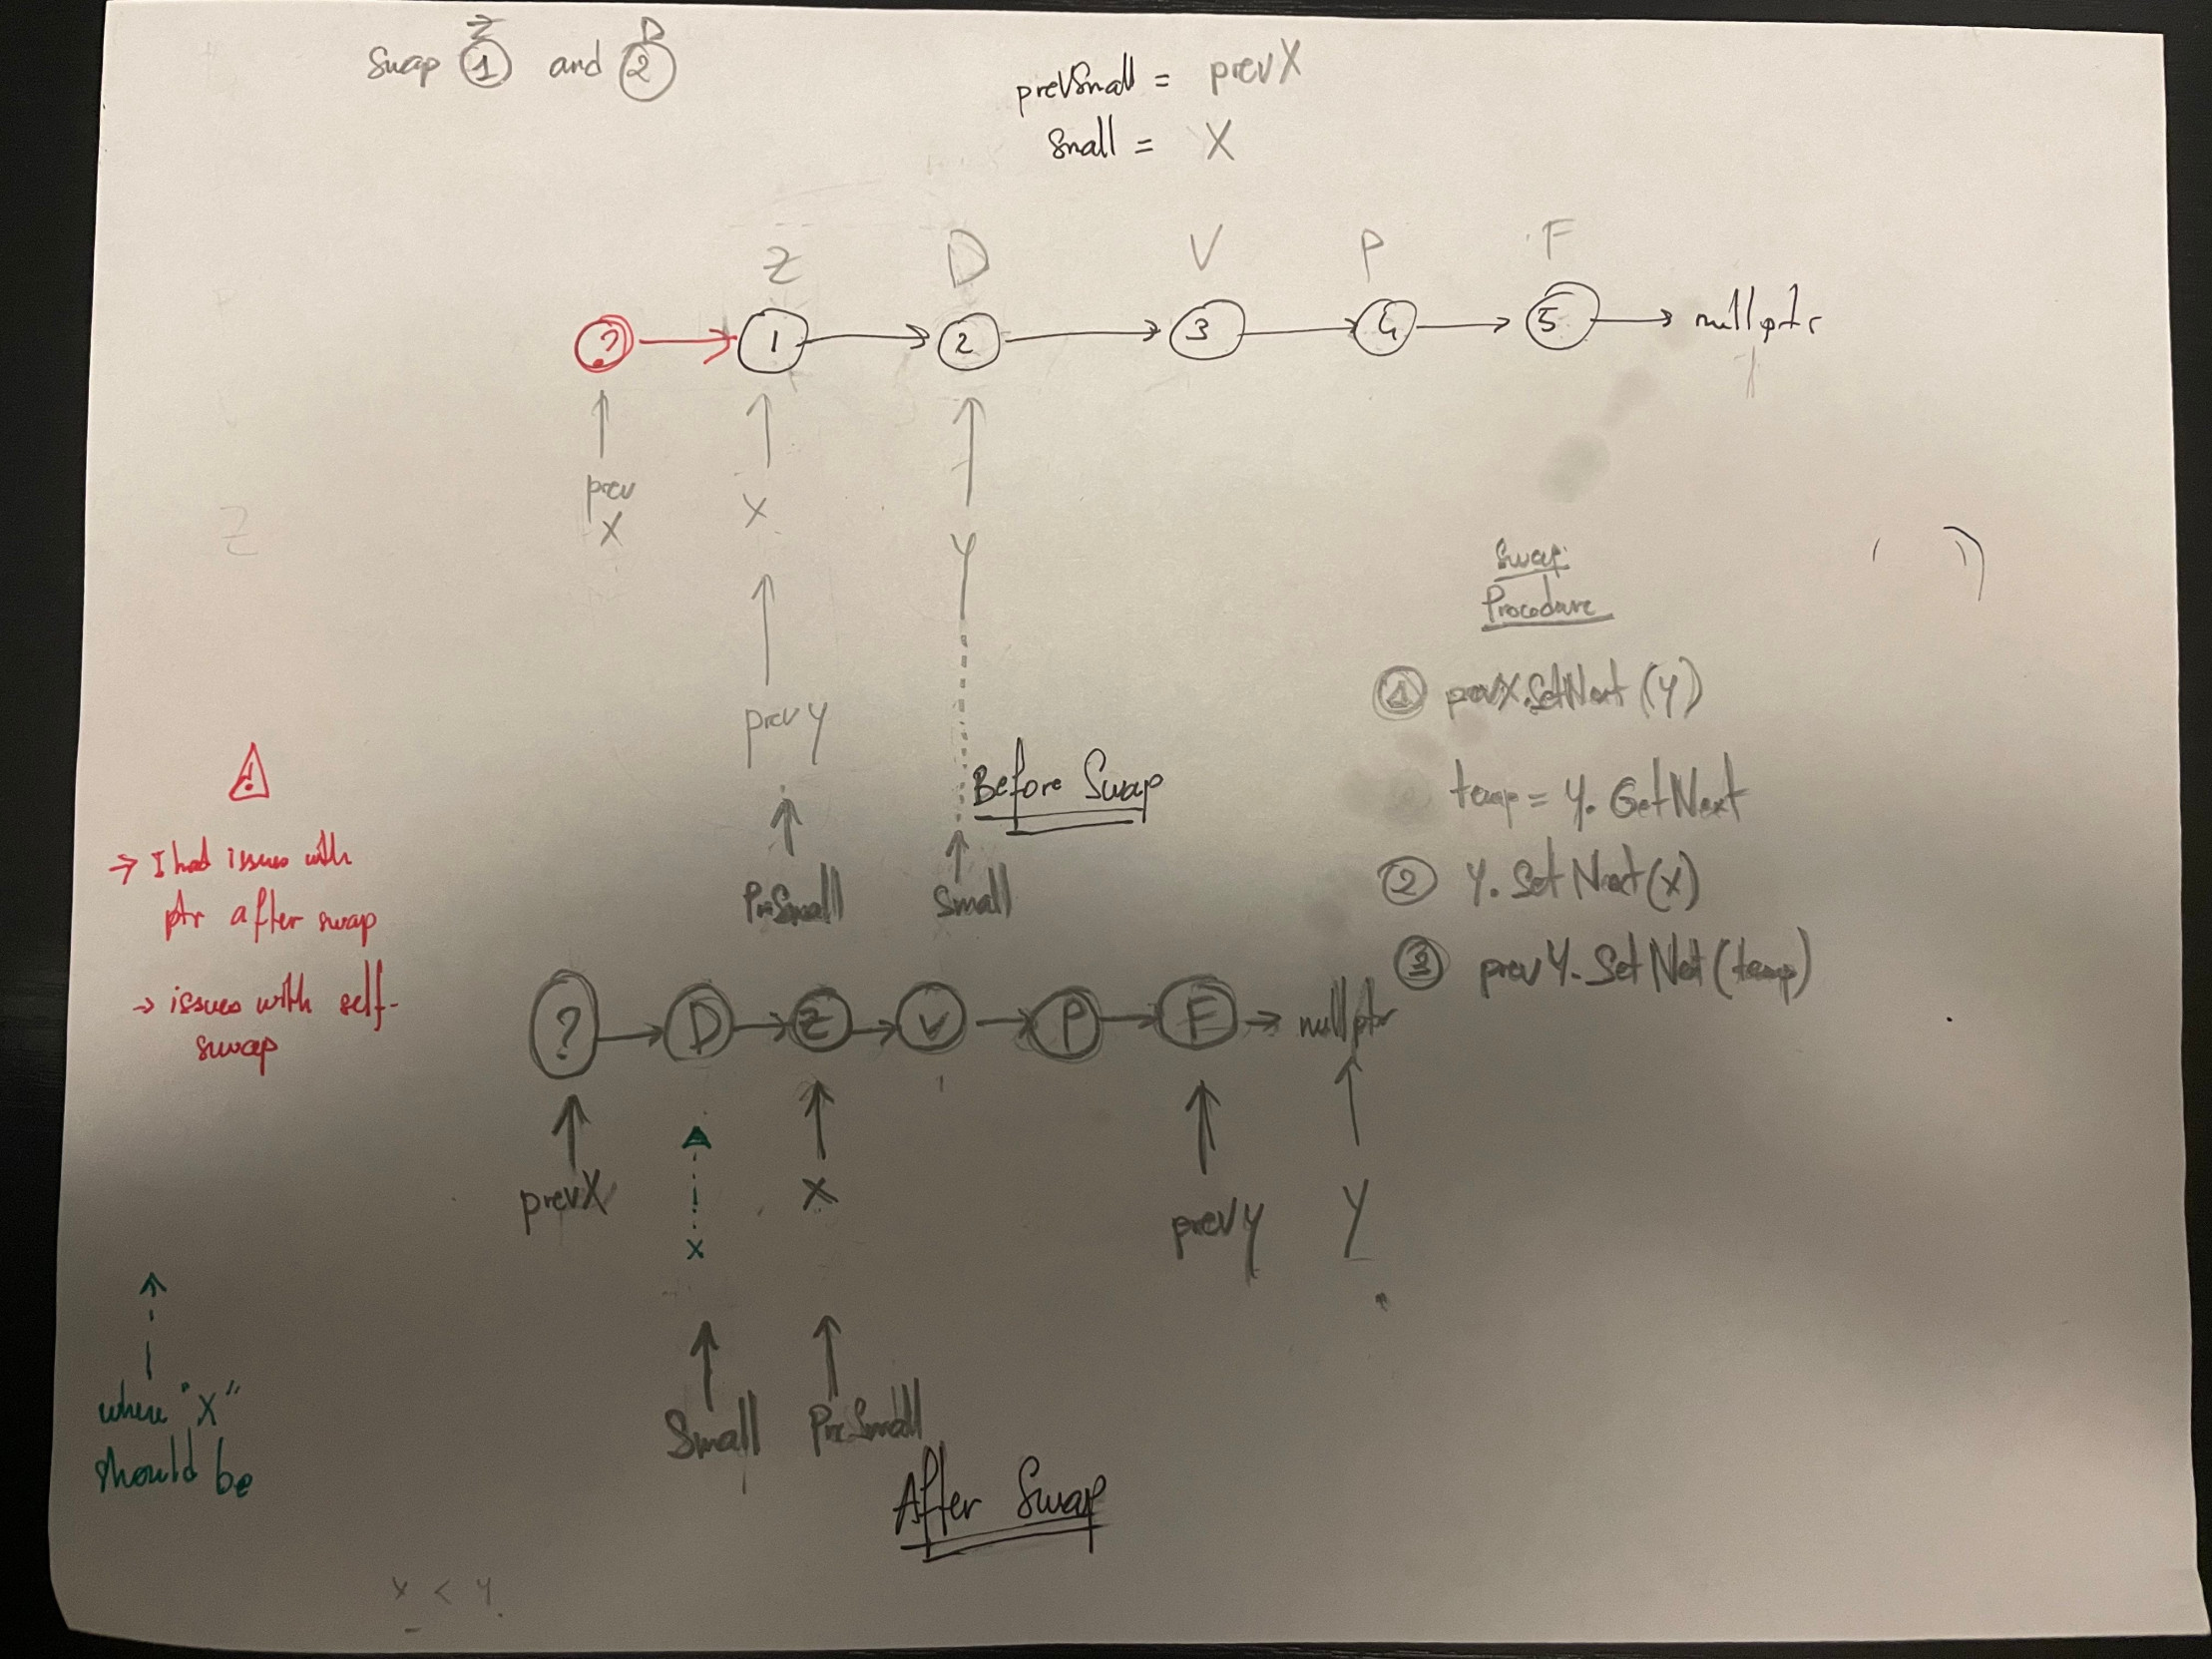 Swap Z 1 and D 2
prevSmall = prevX
Small = X
Z D V P F
? 1 2 3 4 5 nullptr
prev
X
X
Y
prevY
PrSmall
Small
Before Swap
Swap
Procedure
1 prevX.SetNext(Y)
temp = Y.GetNext
2 Y.SetNext(X)
3 prevY.SetNext(temp)
!
→ I had issues with
ptr after swap
→ issues with self-
swap
? D Z V P F nullptr
prevX
X
X
prevY
Y
Small
PreSmall
where "X"
should be
After Swap
X < Y
Z